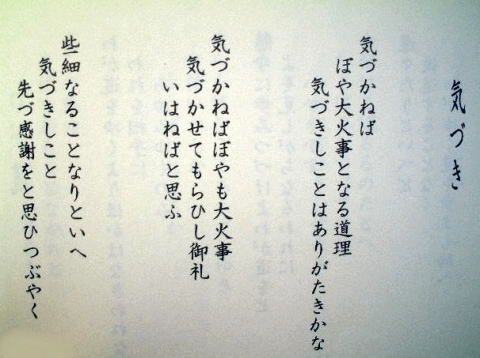 気づき
気づかねば
ぼや大火事となる道理
気づきしことはありがたきかな
気づかねばぼやも大火事
気づかせてもらひし御礼
いはねばと思ふ
些細なることなりといへ
気づきしこと
先づ感謝をと思ひつぶやく